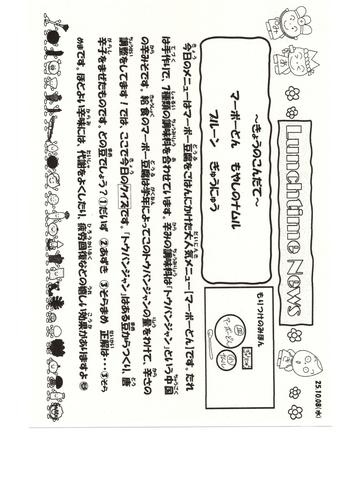 25.10.08(水)
Lunchtime News
～きょうのこんだて～
マーボーどん　もやしのナムル
プルーン　ぎゅうにゅう
もりつけのみほん
マーボーどん
今日のメニューはマーボー豆腐をごはんにかけた大人気メニュー【マーボーどん】です。たれ
は手作りで、7種類の調味料を合わせています。辛みの調味料は「トウバンジャン」という中国
の辛みそです。給食のマーボー豆腐は学年によってこのトウバンジャンの量をわけて、辛さの
調整をしてます！では、ここで今日のクイズです。「トウバンジャン」はある豆からつくり、唐
辛子をまぜたものです。どの豆でしょう？①だいず　②あずき　③そらまめ　正解は・・・③そら
めです。ほどよい辛味には、代謝をよくしたり、疲労回復などの嬉しい効果がありますよ